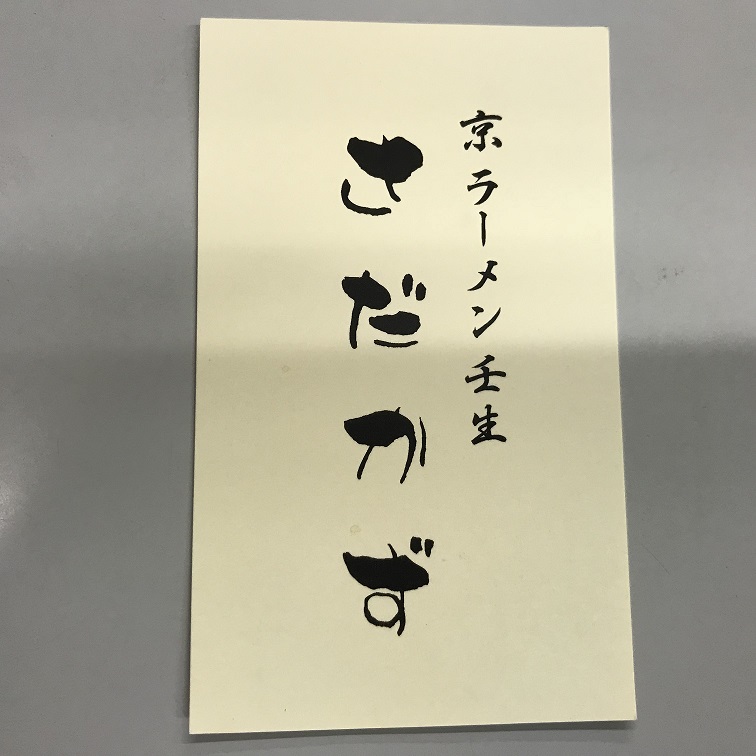 京ラーメン壬生
さだかず